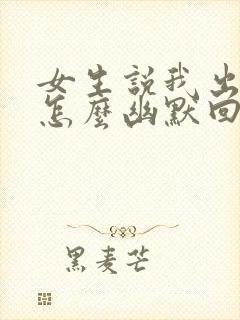 女生説我出
怎麼幽默回
黑麦芒